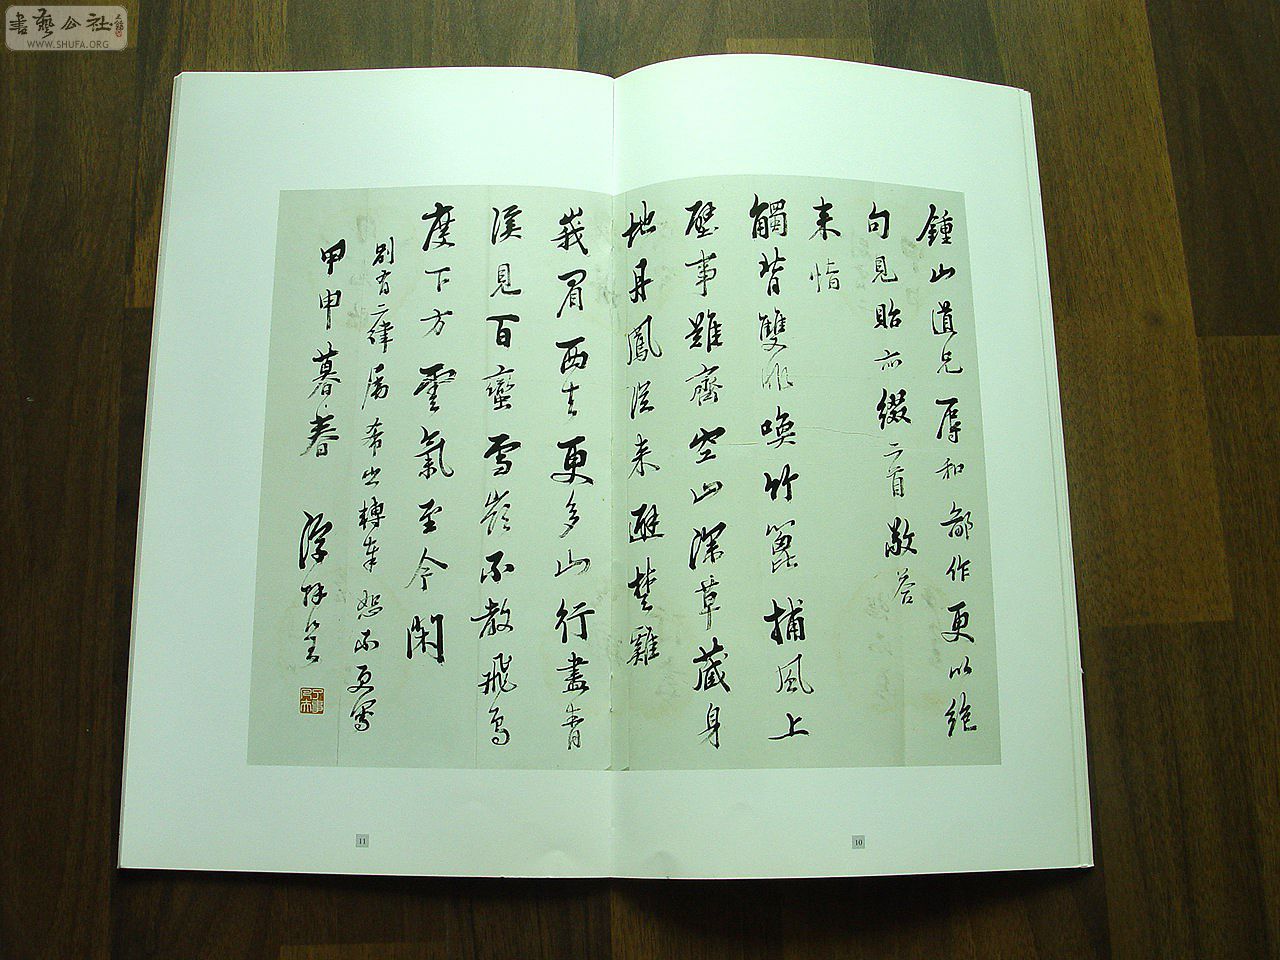 鍾山道兄辱和鄙作更以絶
句見貽亦綴二首敬荅
来恉
觸背雙非喚竹篦捕風上
壁事難齊空山深草藏身
地丹鳳從来避楚雞
峩眉西去更多山行盡青
溪見百蠻雪嶺不教飛鳥
度下方雲氣至今閑
别有二律屬希出轉奉恕不更寫
甲申暮春
11
10
書藝公社
WWW.SHUFA.ORG